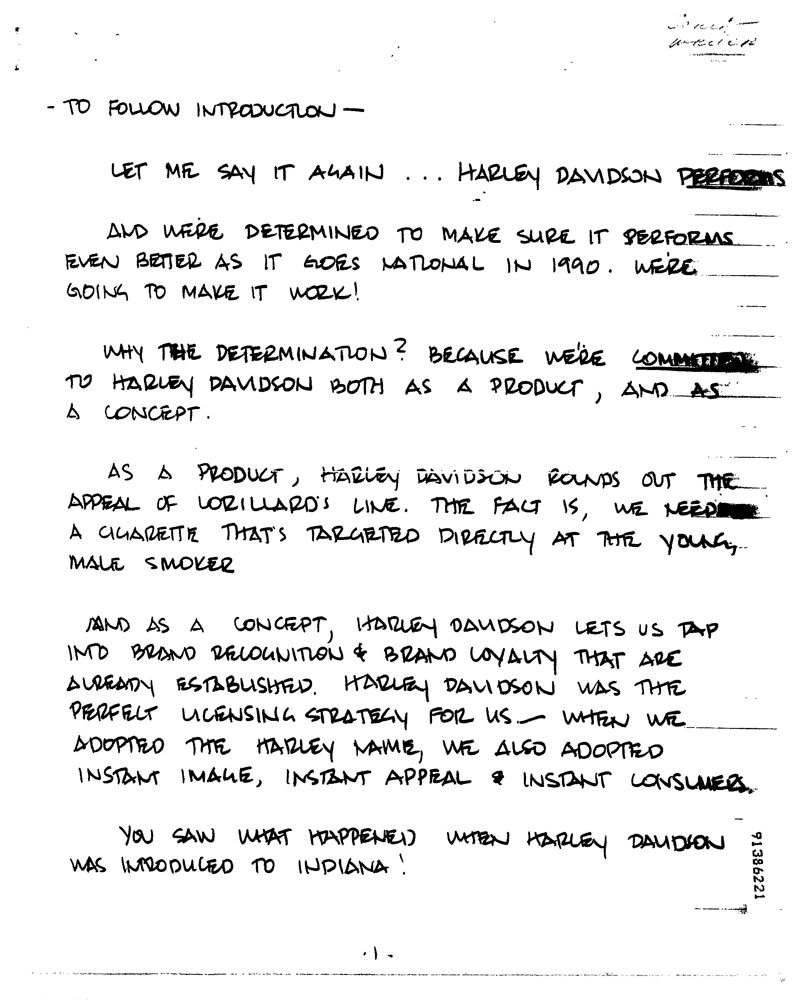 - TO FOLLOW INTRODUCTION —
LET ME SAY IT AGAIN ... HARLEY DAVIDSON PERFORMS
AND WE'RE DETERMINED TO MAKE SURE IT PERFORMS
EVEN BETTER AS IT GOES NATIONAL IN 1990. WE'RE
GOING TO MAKE IT WORK!
WHY THE DETERMINATION? BECAUSE WE'RE COMMITTED
TO HARLEY DAVIDSON BOTH AS A PRODUCT, AND AS
A CONCEPT.
AS A PRODUCT, HARLEY DAVIDSON ROUNDS OUT THE
APPEAL OF LORILLARD'S LINE. THE FACT IS, WE NEED
A CIGARETTE THAT'S TARGETED DIRECTLY AT THE YOUNG,
MALE SMOKER
AND AS A CONCEPT, HARLEY DAVIDSON LETS US TAP
INTO BRAND RECOGNITION & BRAND LOYALTY THAT ARE
ALREADY ESTABLISHED. HARLEY DAVIDSON WAS THE
PERFECT LICENSING STRATEGY FOR US — WHEN WE
ADOPTED THE HARLEY NAME, WE ALSO ADOPTED
INSTANT IMAGE, INSTANT APPEAL & INSTANT CONSUMERS.
YOU SAW WHAT HAPPENED WHEN HARLEY DAVIDSON
WAS INTRODUCED TO INDIANA!
91386221
. 1 -